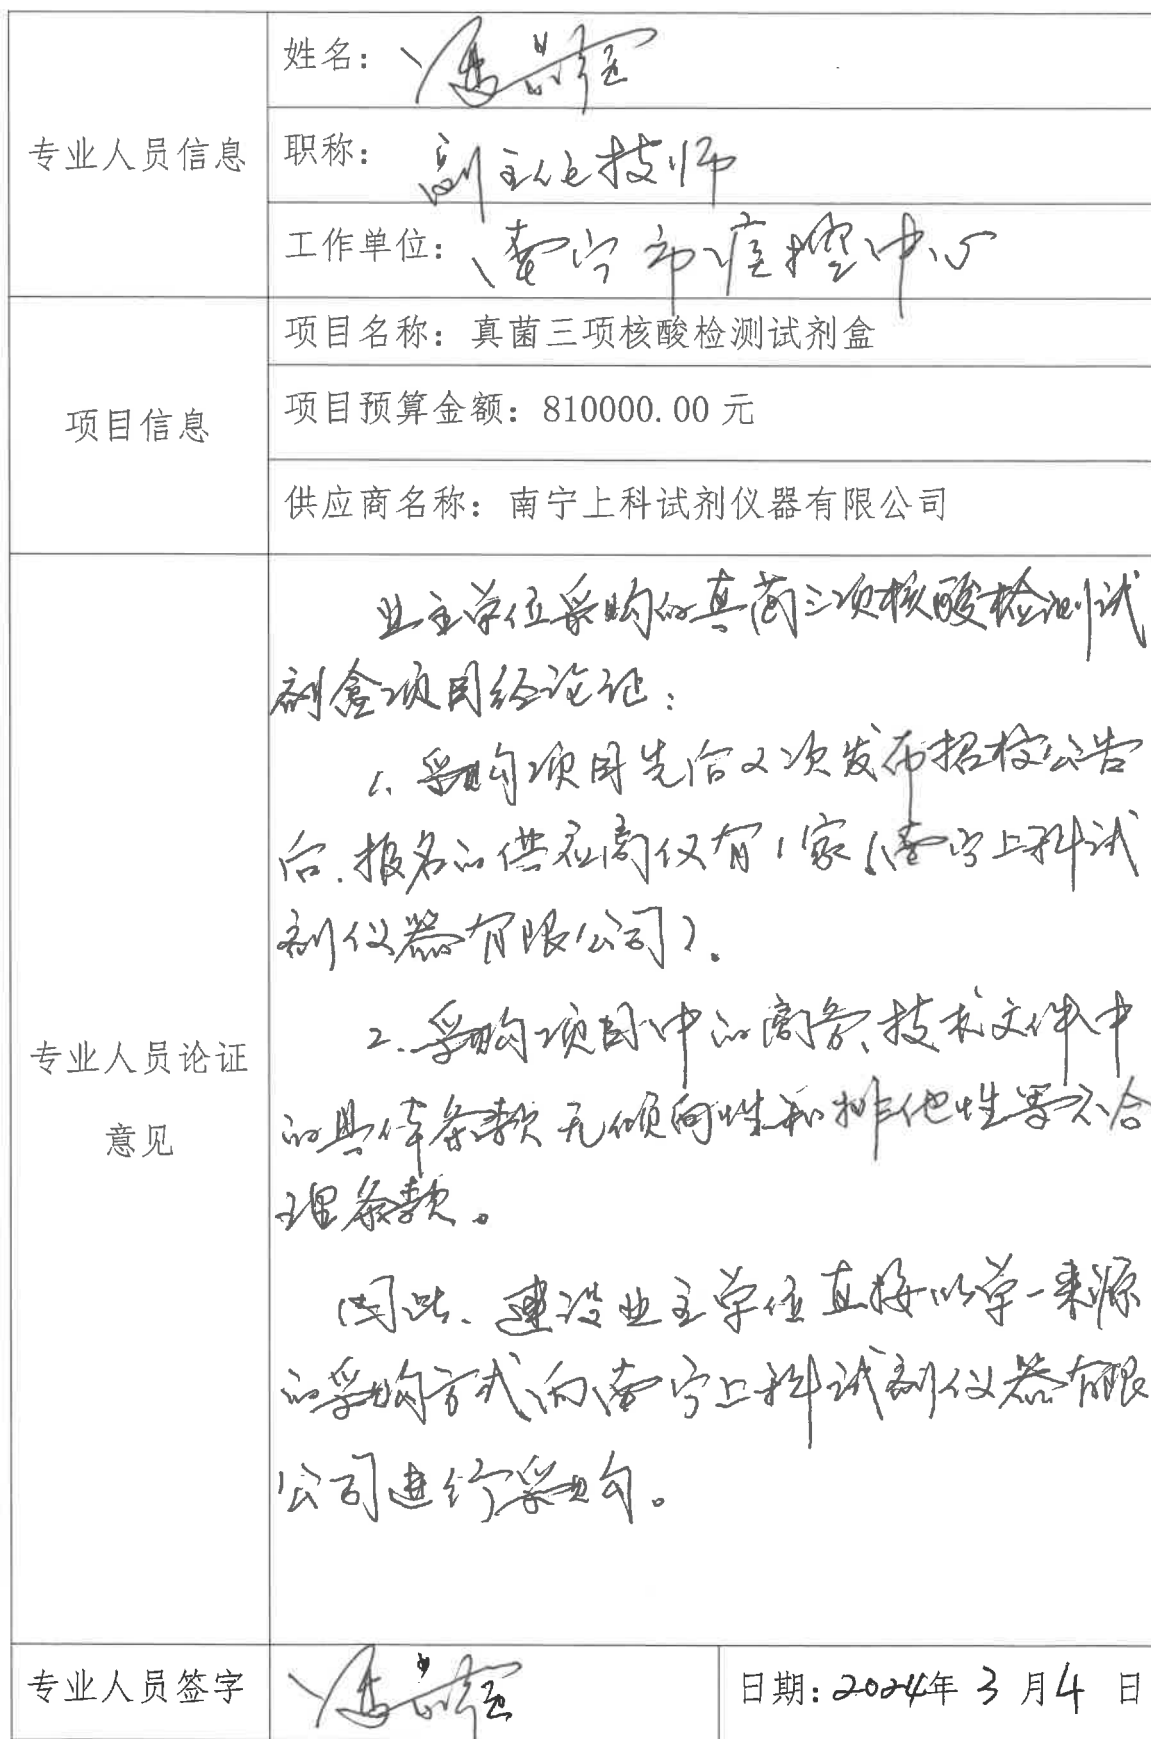 姓名：
专业人员信息
职称：副主任技师
工作单位：南宁市疾控中心
项目信息
项目名称：真菌三项核酸检测试剂盒
项目预算金额：810000.00 元
供应商名称：南宁上科试剂仪器有限公司
专业人员论证
意见
业主单位采购的真菌三项核酸检测试
剂盒项目经论证：
1、采购项目先后2次发布招标公告
后，报名的供应商仅有1家（南宁上科试
剂仪器有限公司）。
2、采购项目中的商务、技术文件中
的具体条款无倾向性和排他性等不合
理条款。
因此、建议业主单位直接以单一来源
的采购方式向南宁上科试剂仪器有限
公司进行采购。
专业人员签字
日期：2024年 3 月 4 日